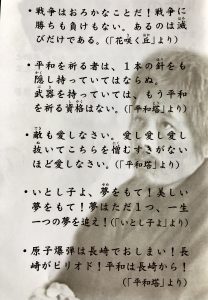 ・戦争はおろかなことだ！戦争に
勝ちも負けもない。あるのは滅
びだけである。（「花咲く丘」より）
・平和を祈る者は、１本の針をも
隠し持っていてはならぬ。
武器を持っていては、もう平和
を祈る資格はない。（「平和塔」より）
・敵も愛しなさい。愛し愛し愛し
抜いてこちらを憎むすきがない
ほど愛しなさい。（「平和塔」より）
・いとし子よ、夢をもて！美しい
夢をもて！夢はただ１つ、一生
一つの夢を追え！（「いとし子よ」より）
・原子爆弾は長崎でおしまい！長
崎がピリオド！平和は長崎から！
（「平和塔」より）